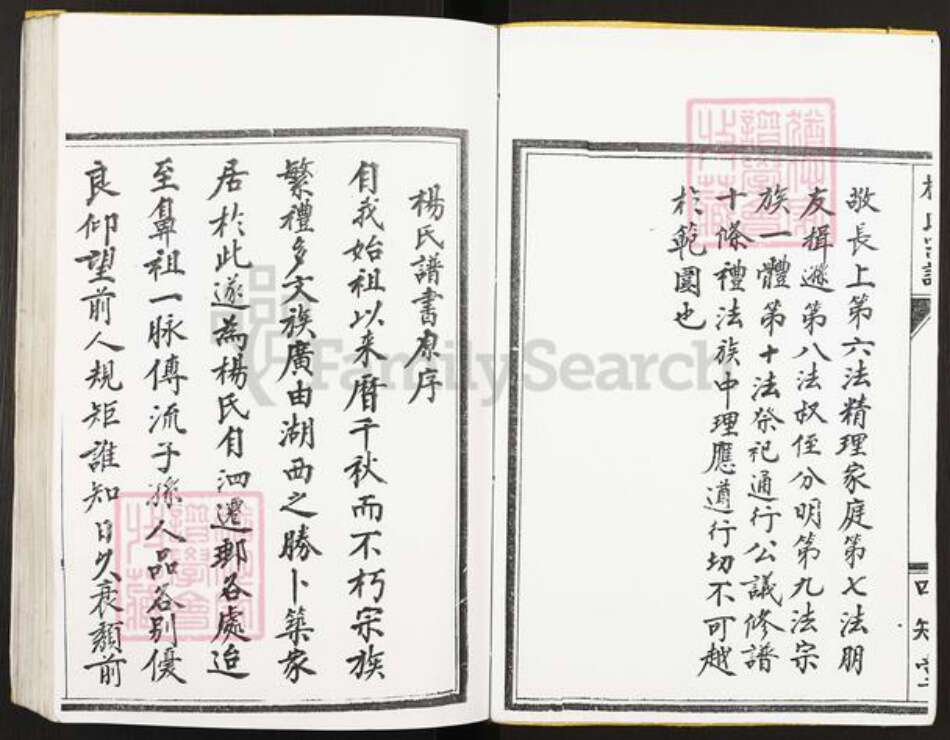 敬長上第六法精理家庭第七法朋
友揖遜第八法叔侄分明第九法宗
族一體第十法祭祀通行公議修譜
十條禮法族中理應遵行切不可越
於範圍也
楊氏譜書原序
自我始祖以来曆千秋而不朽宗族
繁禮多文族廣由湖西之勝卜築家
居於此遂為楊氏自泗遷邳各處迨
至鼻祖一脉傳流子孫人品各別優
良仰望前人規矩誰知日久衰頹前
FamilySearch